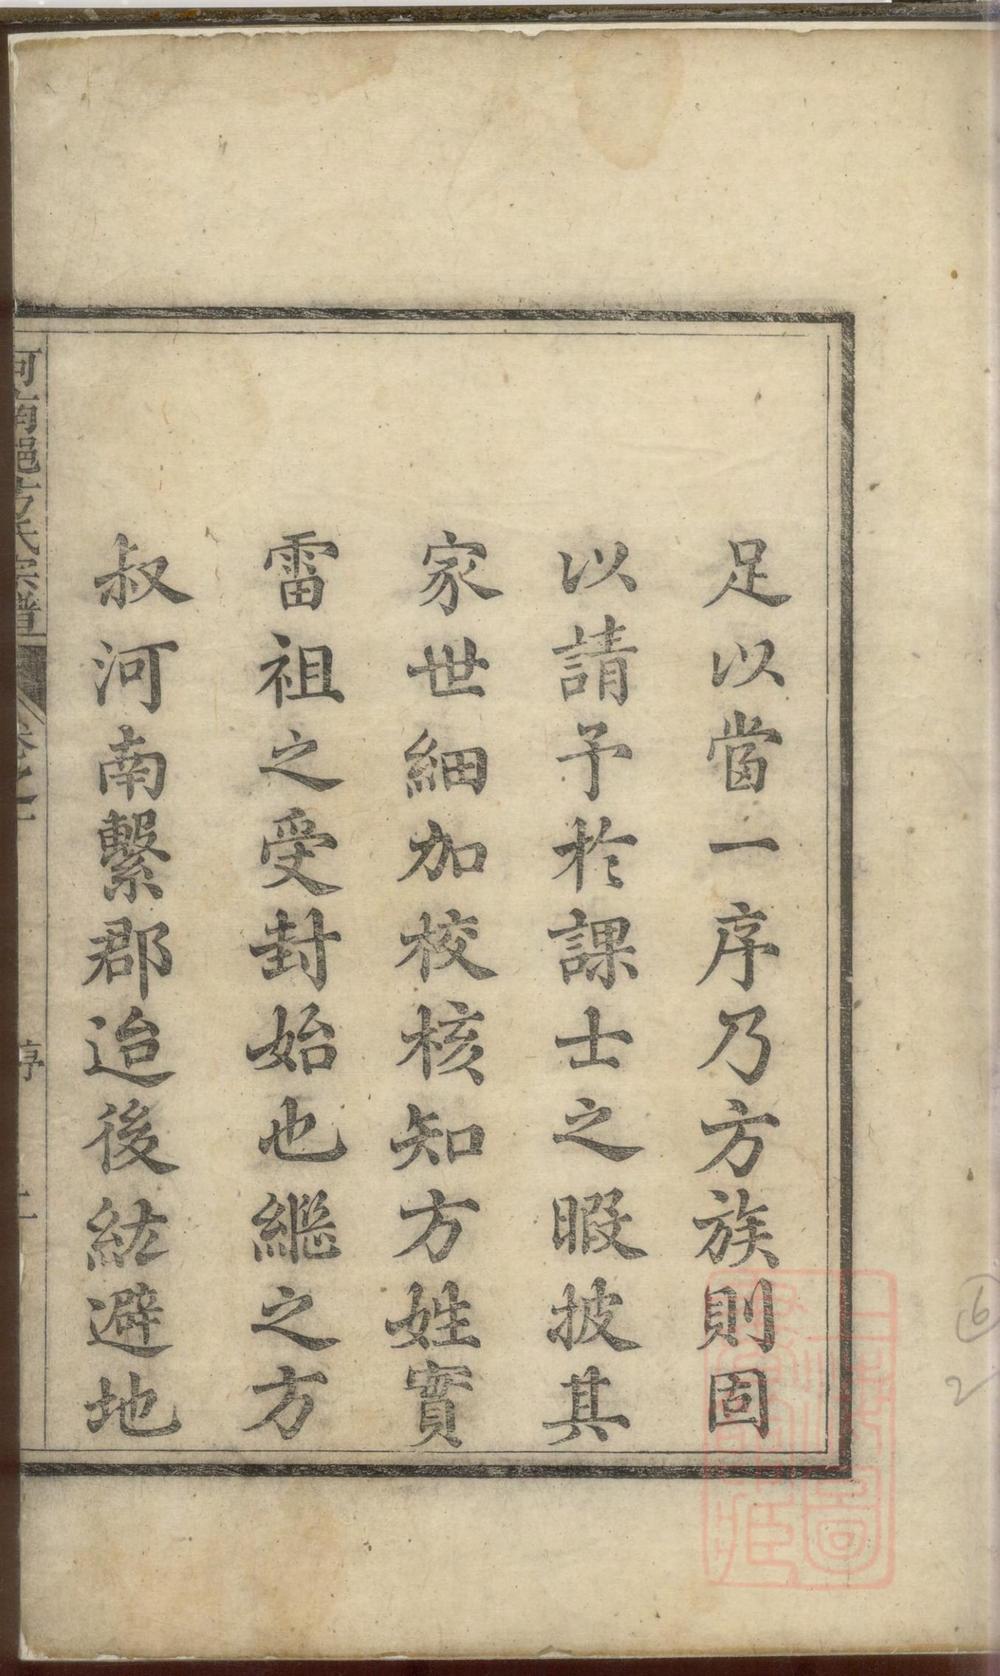 足以當一序乃方族則固
以請予於課士之暇披其
家世細加校核知方姓實
雷祖之受封始也繼之方
叔河南繫郡迨後紘避地
河南郡方氏宗譜
卷之一
序